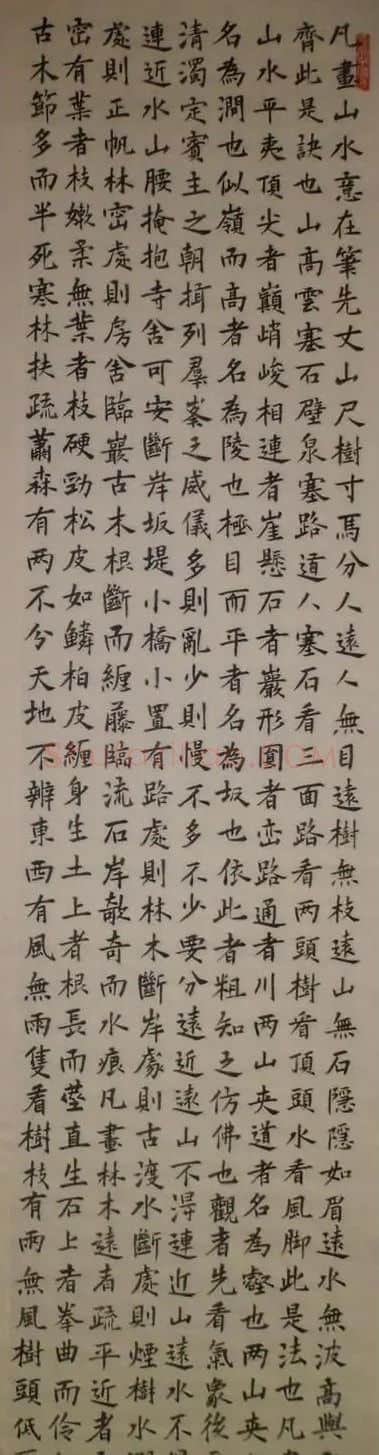 凡畫山水意在筆先丈山尺樹寸馬分人遠人無目遠樹無枝遠山無石隱隱如眉遠水無波高與
齊此是訣也山高雲塞石壁泉塞路道人塞石看三面路看两頭樹看頂頭水看風脚此是法也凡
山水平夷頂尖者巔峭峻相連者崖懸石者巖形圓者峦路通者川两山夹道者名為壑也两山夹
名為澗也似嶺而高者名為陵也極目而平者名為坂也依此者粗知之仿佛也觀者先看氣象後
清濁定賓主之朝揖列羣峯之威儀多則亂少則慢不多不少要分遠近遠山不得連近山遠水不
連近水山腰掩抱寺舍可安斷岸坂堤小橋小置有路處則林木斷岸處則古渡水斷處則煙樹水
處則正帆林密處則房舍臨巖古木根斷而纏藤臨流石岸欹奇而水痕凡畫林木遠者疏平近者
密有葉者枝嫩柔無葉者枝硬勁松皮如鱗柏皮纏身生土上者根長而莖直生石上者拳曲而伶
古木節多而半死寒林扶疏蕭森有两不分天地不辨東西有風無雨隻看樹枝有雨無風樹頭低